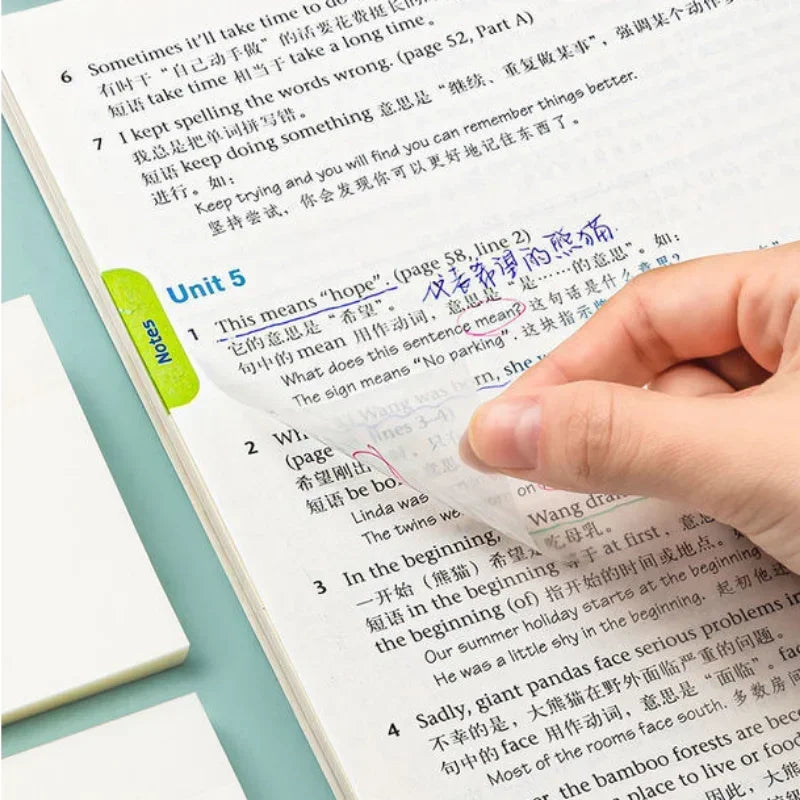 6 Sometimes it'll take time to do
有时干“自己动手做”的活要花费挺长的
短语 take time 相当于 take a long time.
7 I kept spelling the words wrong. (page 52, Part A)
我总是把单词拼写错。
短语 keep doing something 意思是“继续、重复做某事”，强调某个动作
进行。如：
Keep trying and you will find you can remember things better.
坚持尝试，你会发现你可以更好地记住东西了。
Unit 5
Notes
1 This means “hope”. (page 58, line 2)
它的意思是“希望”。
的熊猫
句中的 mean 用作动词，意思是“是……的意思”。如：
What does this sentence mean? 这句话是什么意思？
The sign means “No parking”. 这块指示
2 Wh Wang was born, she
(page lines 3–4)
希望刚出
短语 be bo
Linda was on
The twins we
Wang dran
吃母乳。
3 In the beginning,
一开始（熊猫）希望
短语 in the beginning 等于 at first，意思
the beginning (of) 指开始的时间或地点。
Our summer holiday starts at the beginning
He was a little shy in the beginning. 起初他
4 Sadly, giant pandas face serious problems in
不幸的是，大熊猫在野外面临严重的问题。
句中的 face 用作动词，意思是“面临”。fac
Most of the rooms face south. 多数房间
er, the bamboo forests are beco
place to live or food
因此，大熊